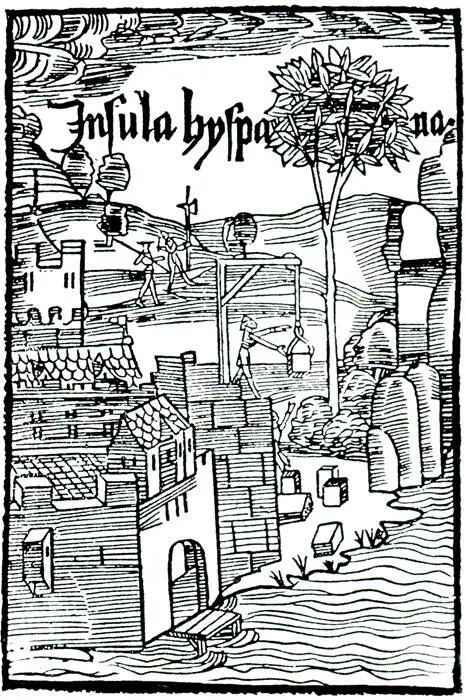 Insula hyspana.